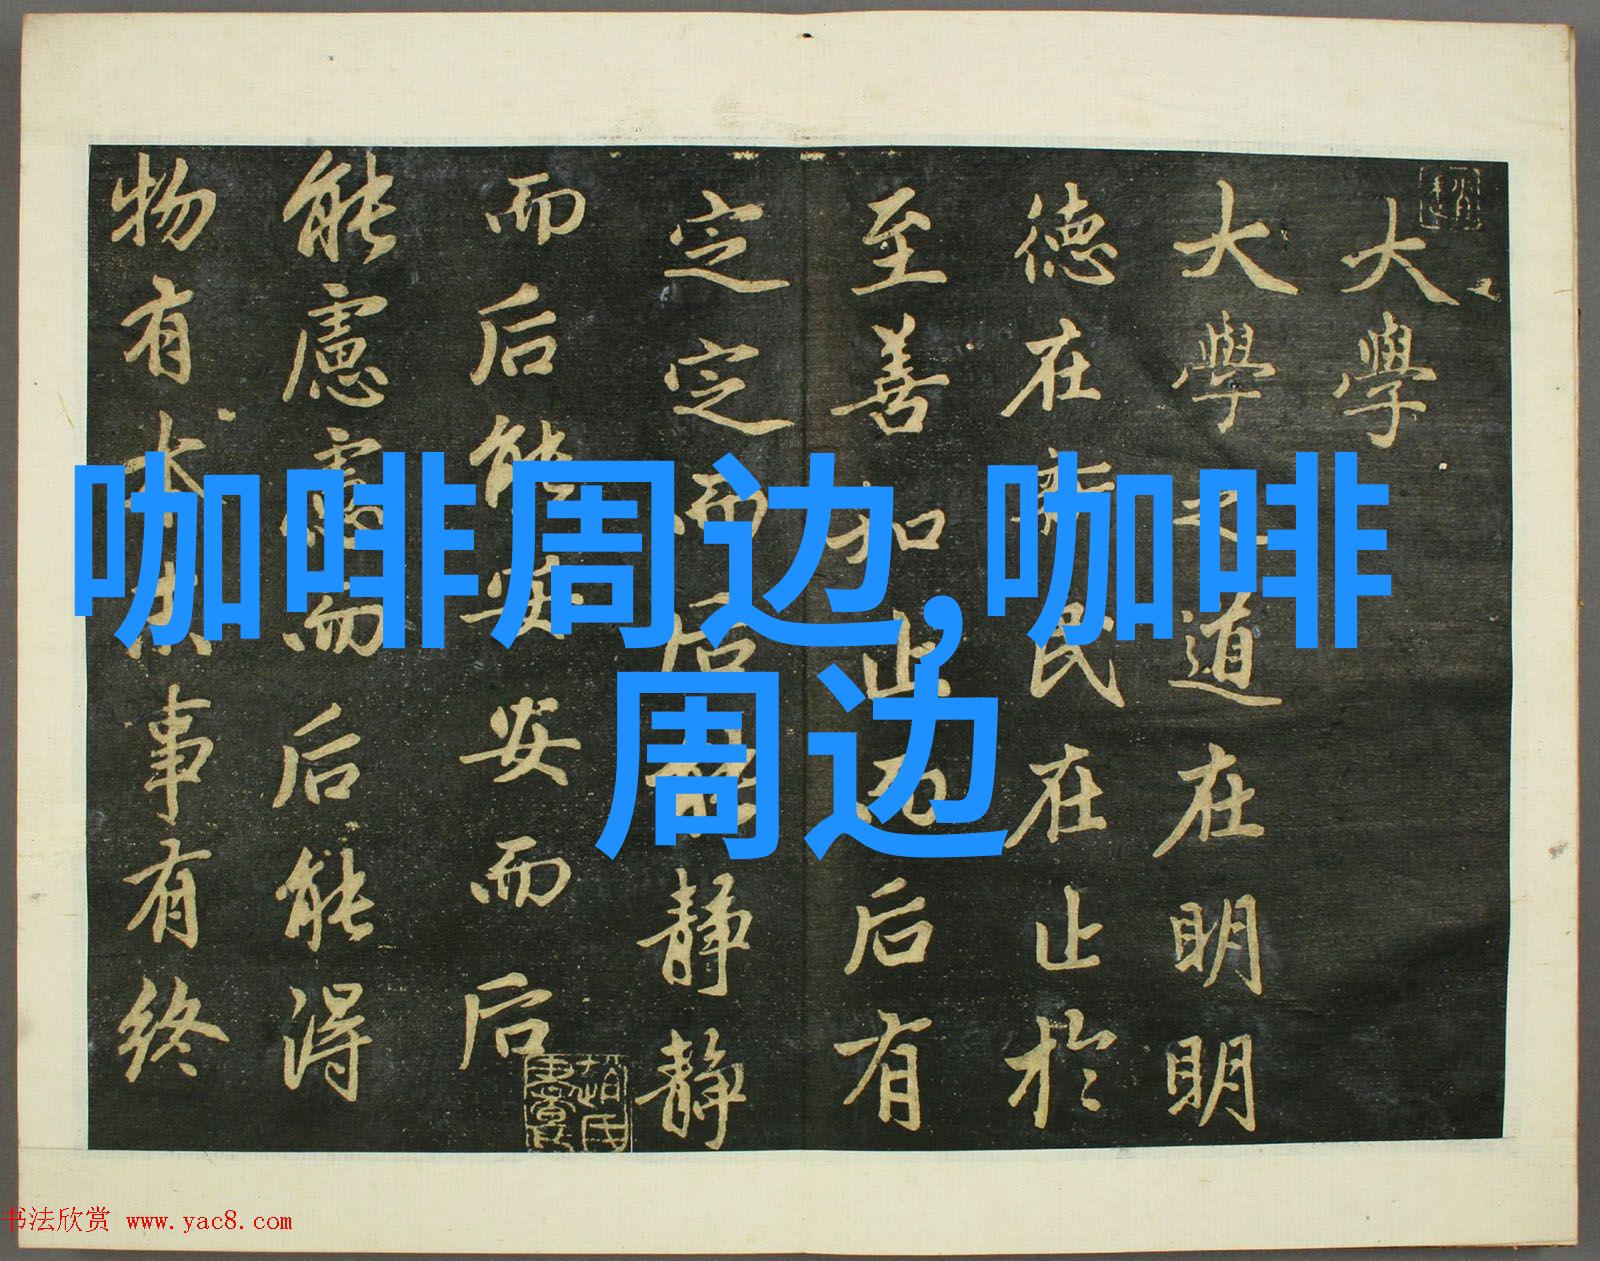 大學
大學之道在明明
德在親民在止於
至善知止而后有
定定而后能靜靜
而后能安安而后
能慮慮而后能得
物有本末事有終
咖啡周边,咖啡
周边
书法欣赏 www.yac8.com